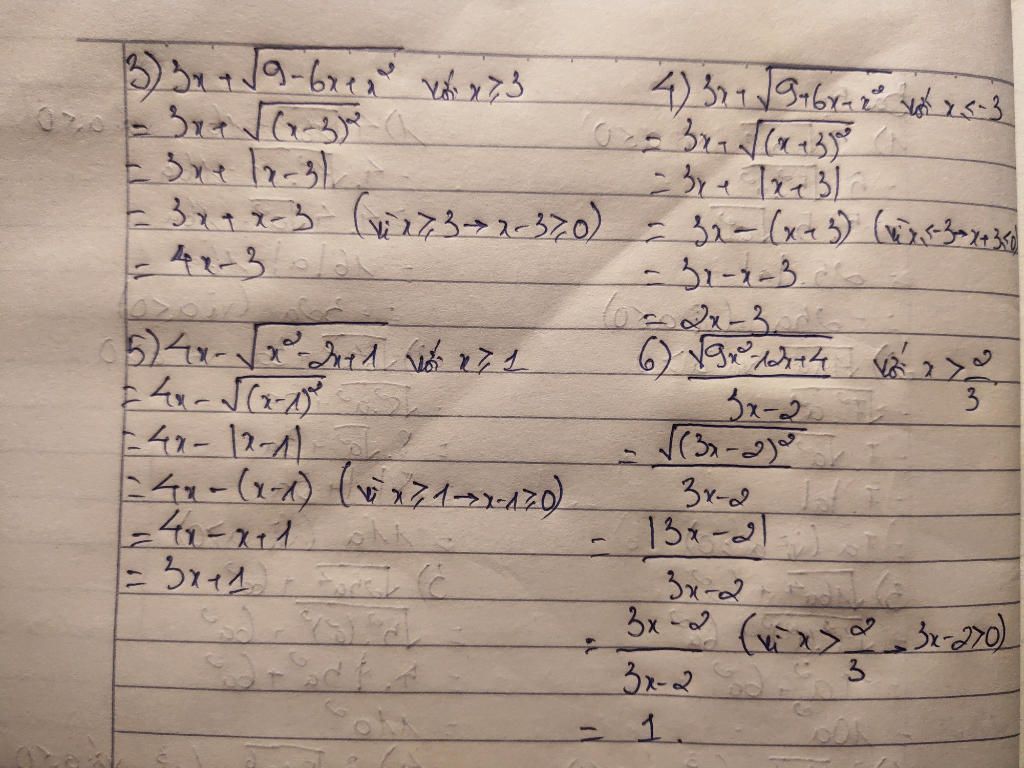 3) 3x + √(9 - 6x + x²) với x ≥ 3
= 3x + √((x-3)²)
= 3x + |x-3|
= 3x + x - 3 (vì x ≥ 3 → x - 3 ≥ 0)
= 4x - 3
4) 3x + √(9 + 6x + x²) với x ≤ -3
= 3x + √((x+3)²)
= 3x + |x+3|
= 3x - (x+3) (vì x ≤ -3 → x+3 ≤ 0)
= 3x - x - 3
= 2x - 3
5) 4x - √(x² - 2x + 1) với x ≥ 1
= 4x - √((x-1)²)
= 4x - |x-1|
= 4x - (x-1) (vì x ≥ 1 → x-1 ≥ 0)
= 4x - x + 1
= 3x + 1
6) √(9x² - 12x + 4) / (3x - 2) với x > 2/3
= √((3x-2)²) / (3x-2)
= |3x-2| / (3x-2)
= (3x-2) / (3x-2) (vì x > 2/3 → 3x-2 > 0)
= 1.